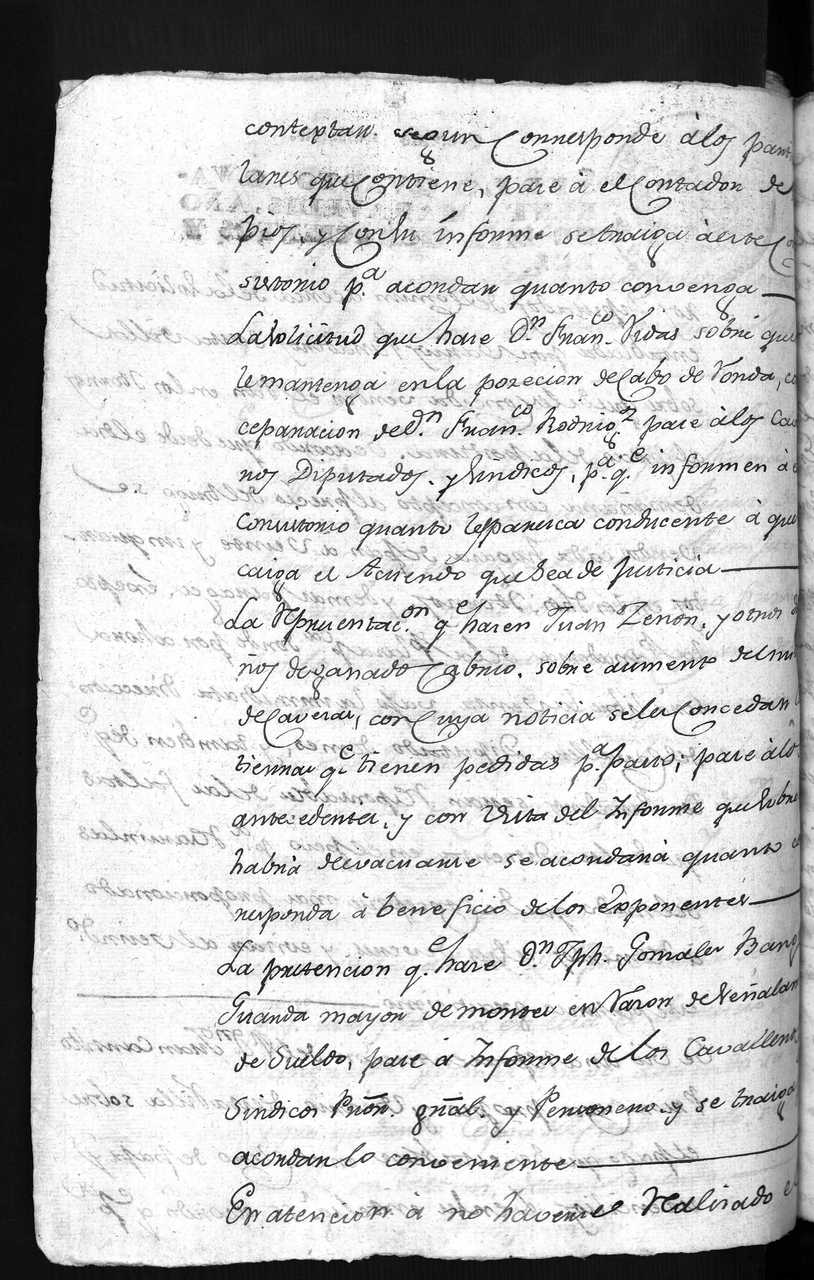 contextan. segun Corresponde à los parti
lares que Contiene, pase à el Contador de
pios, y Con su informe se traiga à este Co
sistorio p.ª acordar quanto convenga
La solicitud que hase D.n Fran.co Vidas sobre que
le mantenga en la posecion de Cabo de Ronda, co
ceparacion de d.n Fran.co Rodrig.z pase à los Cav
ros Diputados, y Sindicos, p.ª q.e informen à e
Consistorio quanto les paresca conducente à que
caiga el Acuerdo que sea de Justicia
La Representac.on q.e hasen Juan Zenon, y otros d
ños de ganado Cabrio, sobre aumento del nu
de Caveras, con Cuya noticia se les Concedan l
tierras q.e tienen pedidas p.ª pasto; pase à los
antecedentes, y con Vista del Informe que sobre
habrà de evacuarse se acordarà quanto co
rresponda à beneficio de los exponentes
La pretencion q.e hase D.n Jph. Gonzales
Guarda mayor de montes en razon de señalar
de Sueldo, pase à Informe de los Cavalleros
Sindicos Prõr. gñal. y Personero, y se traiga
acordar lo conveniente
En atencion à no haverse Realisado e